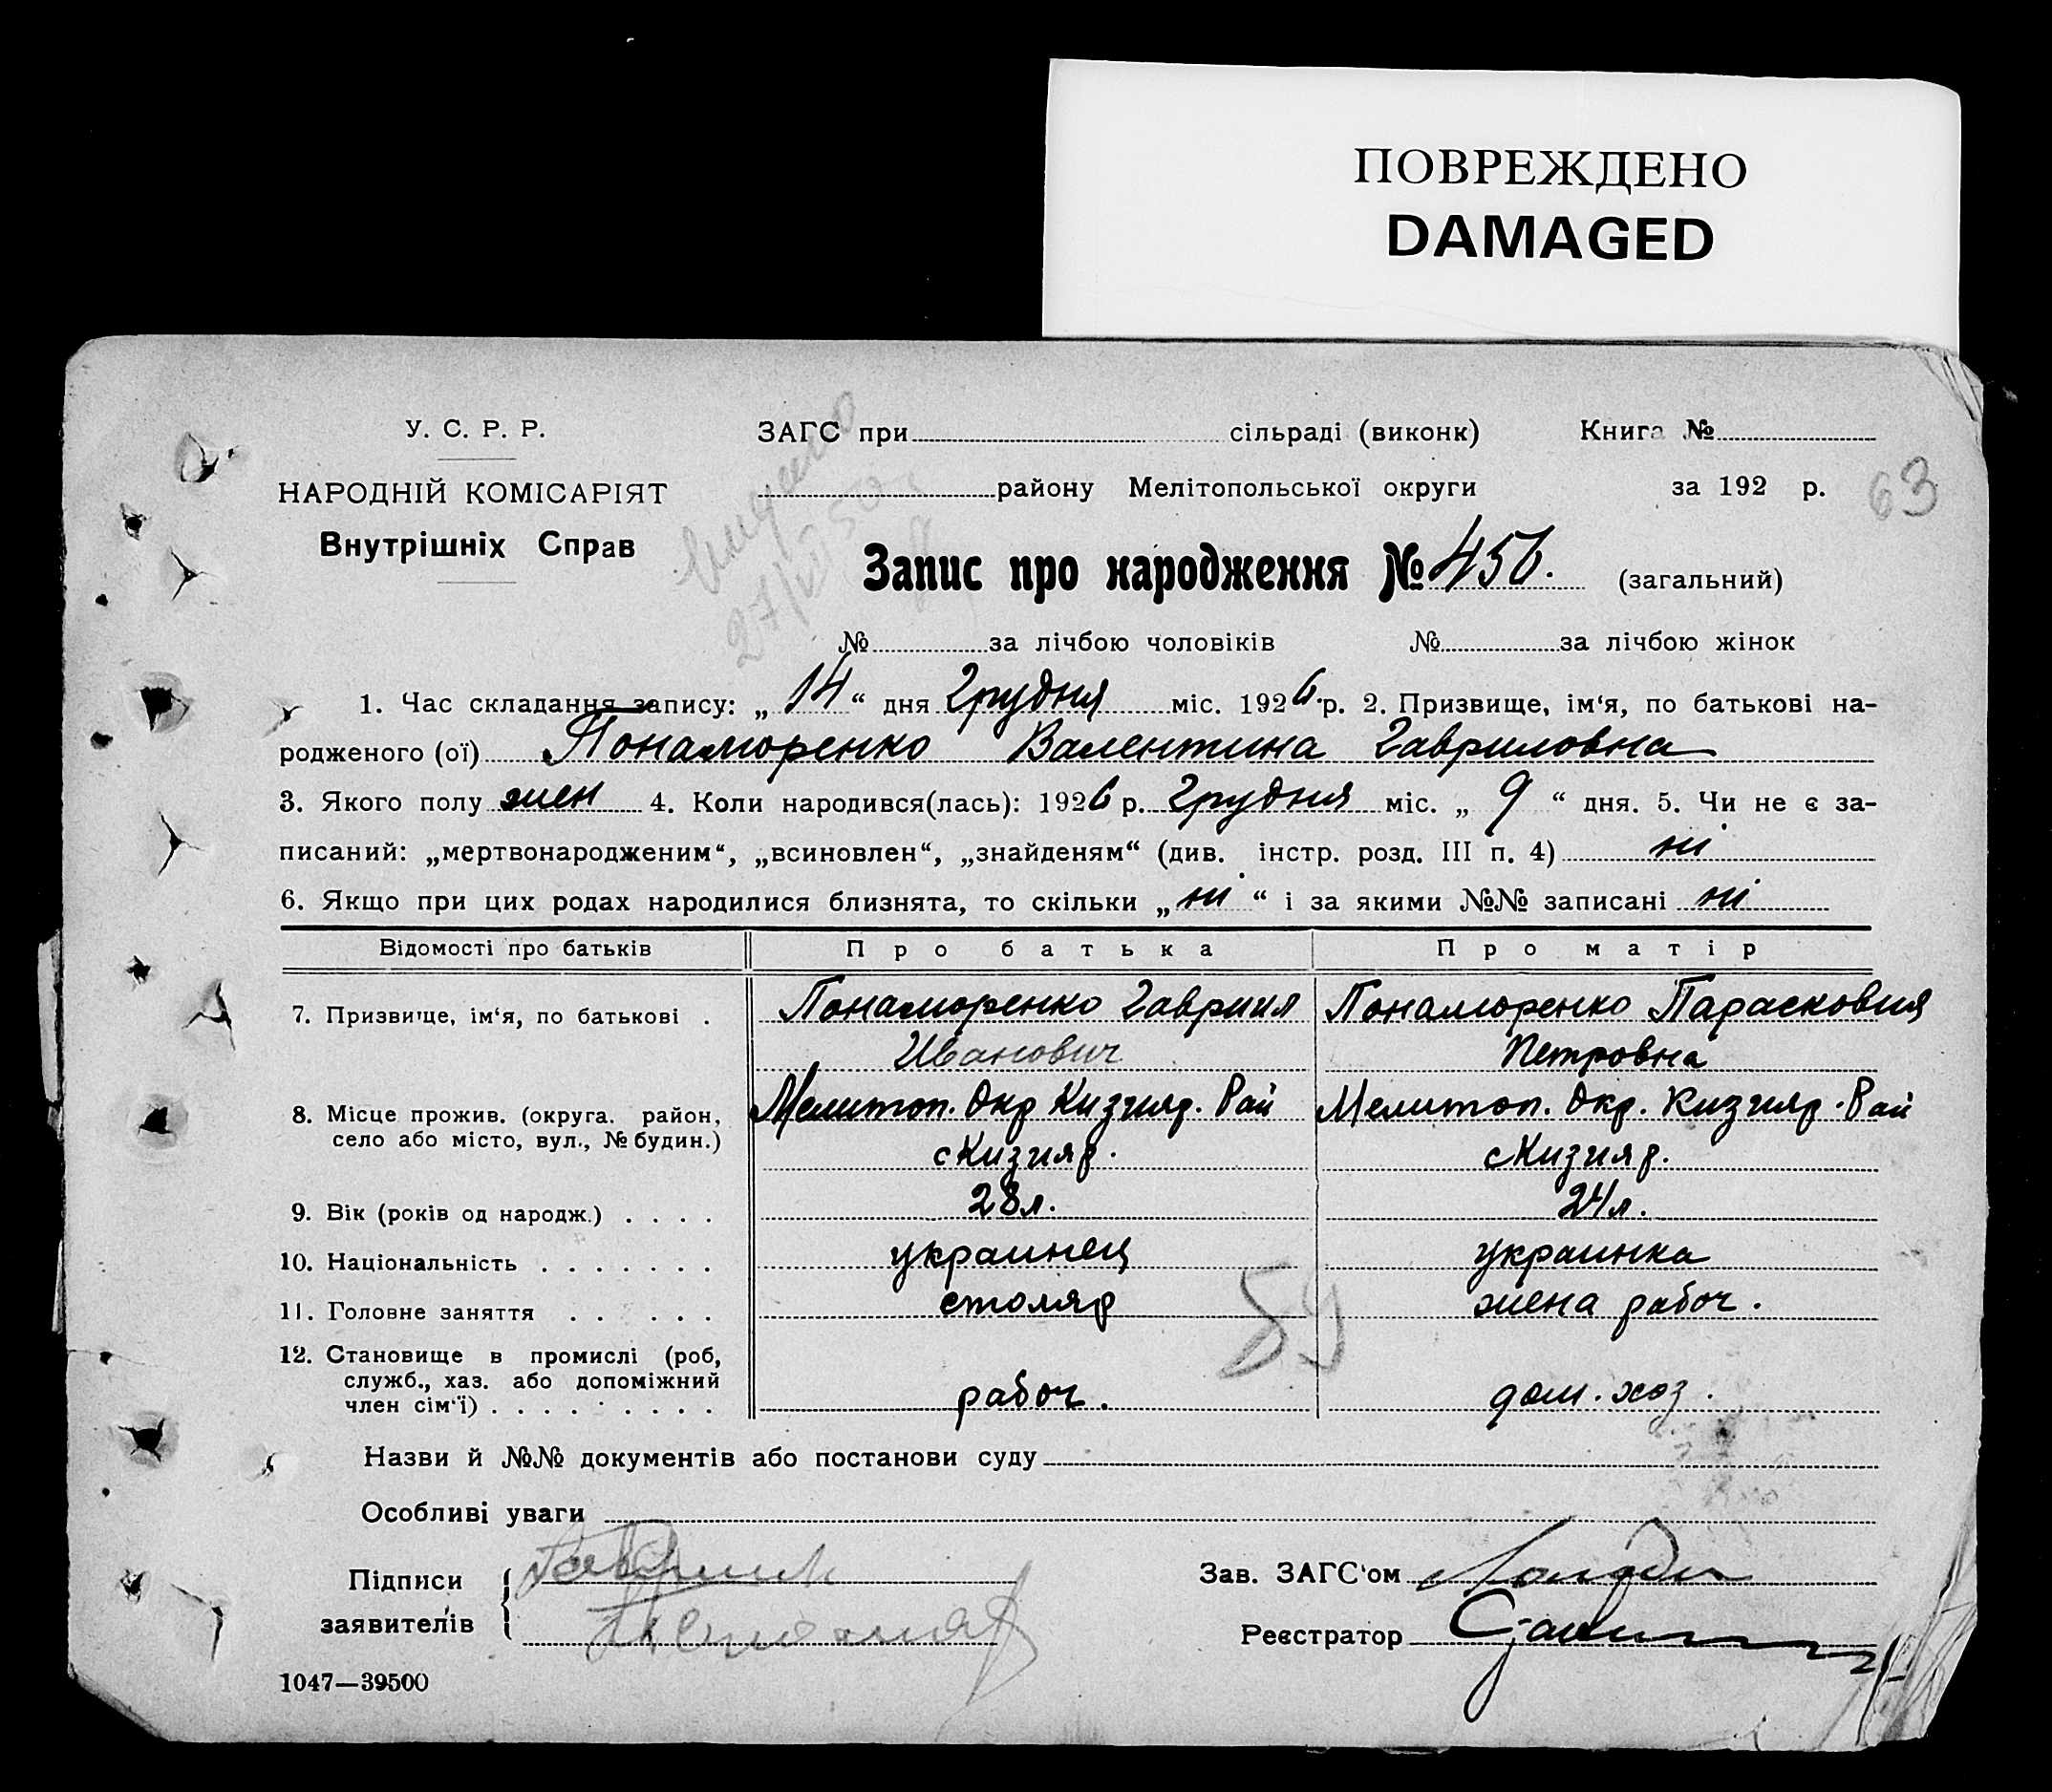 ПОВРЕЖДЕНО
DAMAGED
У. С. Р. Р.
ЗАГС при сільраді (виконк) Книга №
НАРОДНІЙ КОМІСАРІЯТ
району Мелітопольської округи за 192 р.
63
Внутрішніх Справ
Запис про народження № 456. (загальний)
№ за лічбою чоловіків № за лічбою жінок
1. Час складання запису: „ 14 “ дня Грудня міс. 1926 р. 2. Призвище, ім‘я, по батькові на-
родженого (ої) Понаморенко Валентина Гавриловна
3. Якого полу жен 4. Коли народився(лась): 1926 р. Грудня міс. „ 9 “ дня. 5. Чи не є за-
писаний: „мертвонародженим“, „всиновлен“, „знайденям“ (див. інстр. розд. III п. 4) ні
6. Якщо при цих родах народилися близнята, то скільки „ ні “ і за якими №№ записані ні
Відомості про батьків Про батька Про матір
7. Призвище, ім‘я, по батькові . Понаморенко Гавриил Понаморенко Парасковия
Иванович Петровна
8. Місце прожив. (округа. район, Мелитоп. Окр Кизияр. Рай Мелитоп. Окр. Кизияр. Рай
село або місто, вул., № будин.) с Кизияр. с Кизияр.
9. Вік (років од народж.) . . . . 28 л. 24 л.
10. Національність . . . . . . . украинец украинка
11. Головне заняття . . . . . столяр жена рабоч.
59
12. Становище в промислі (роб,
служб., хаз. або допоміжний
член сім‘ї) . . . . . . . . . рабоч. дом. хоз.
Назви й №№ документів або постанови суду
Особливі уваги
Підписи
заявителів
Зав. ЗАГС‘ом
Реєстратор
1047—39500